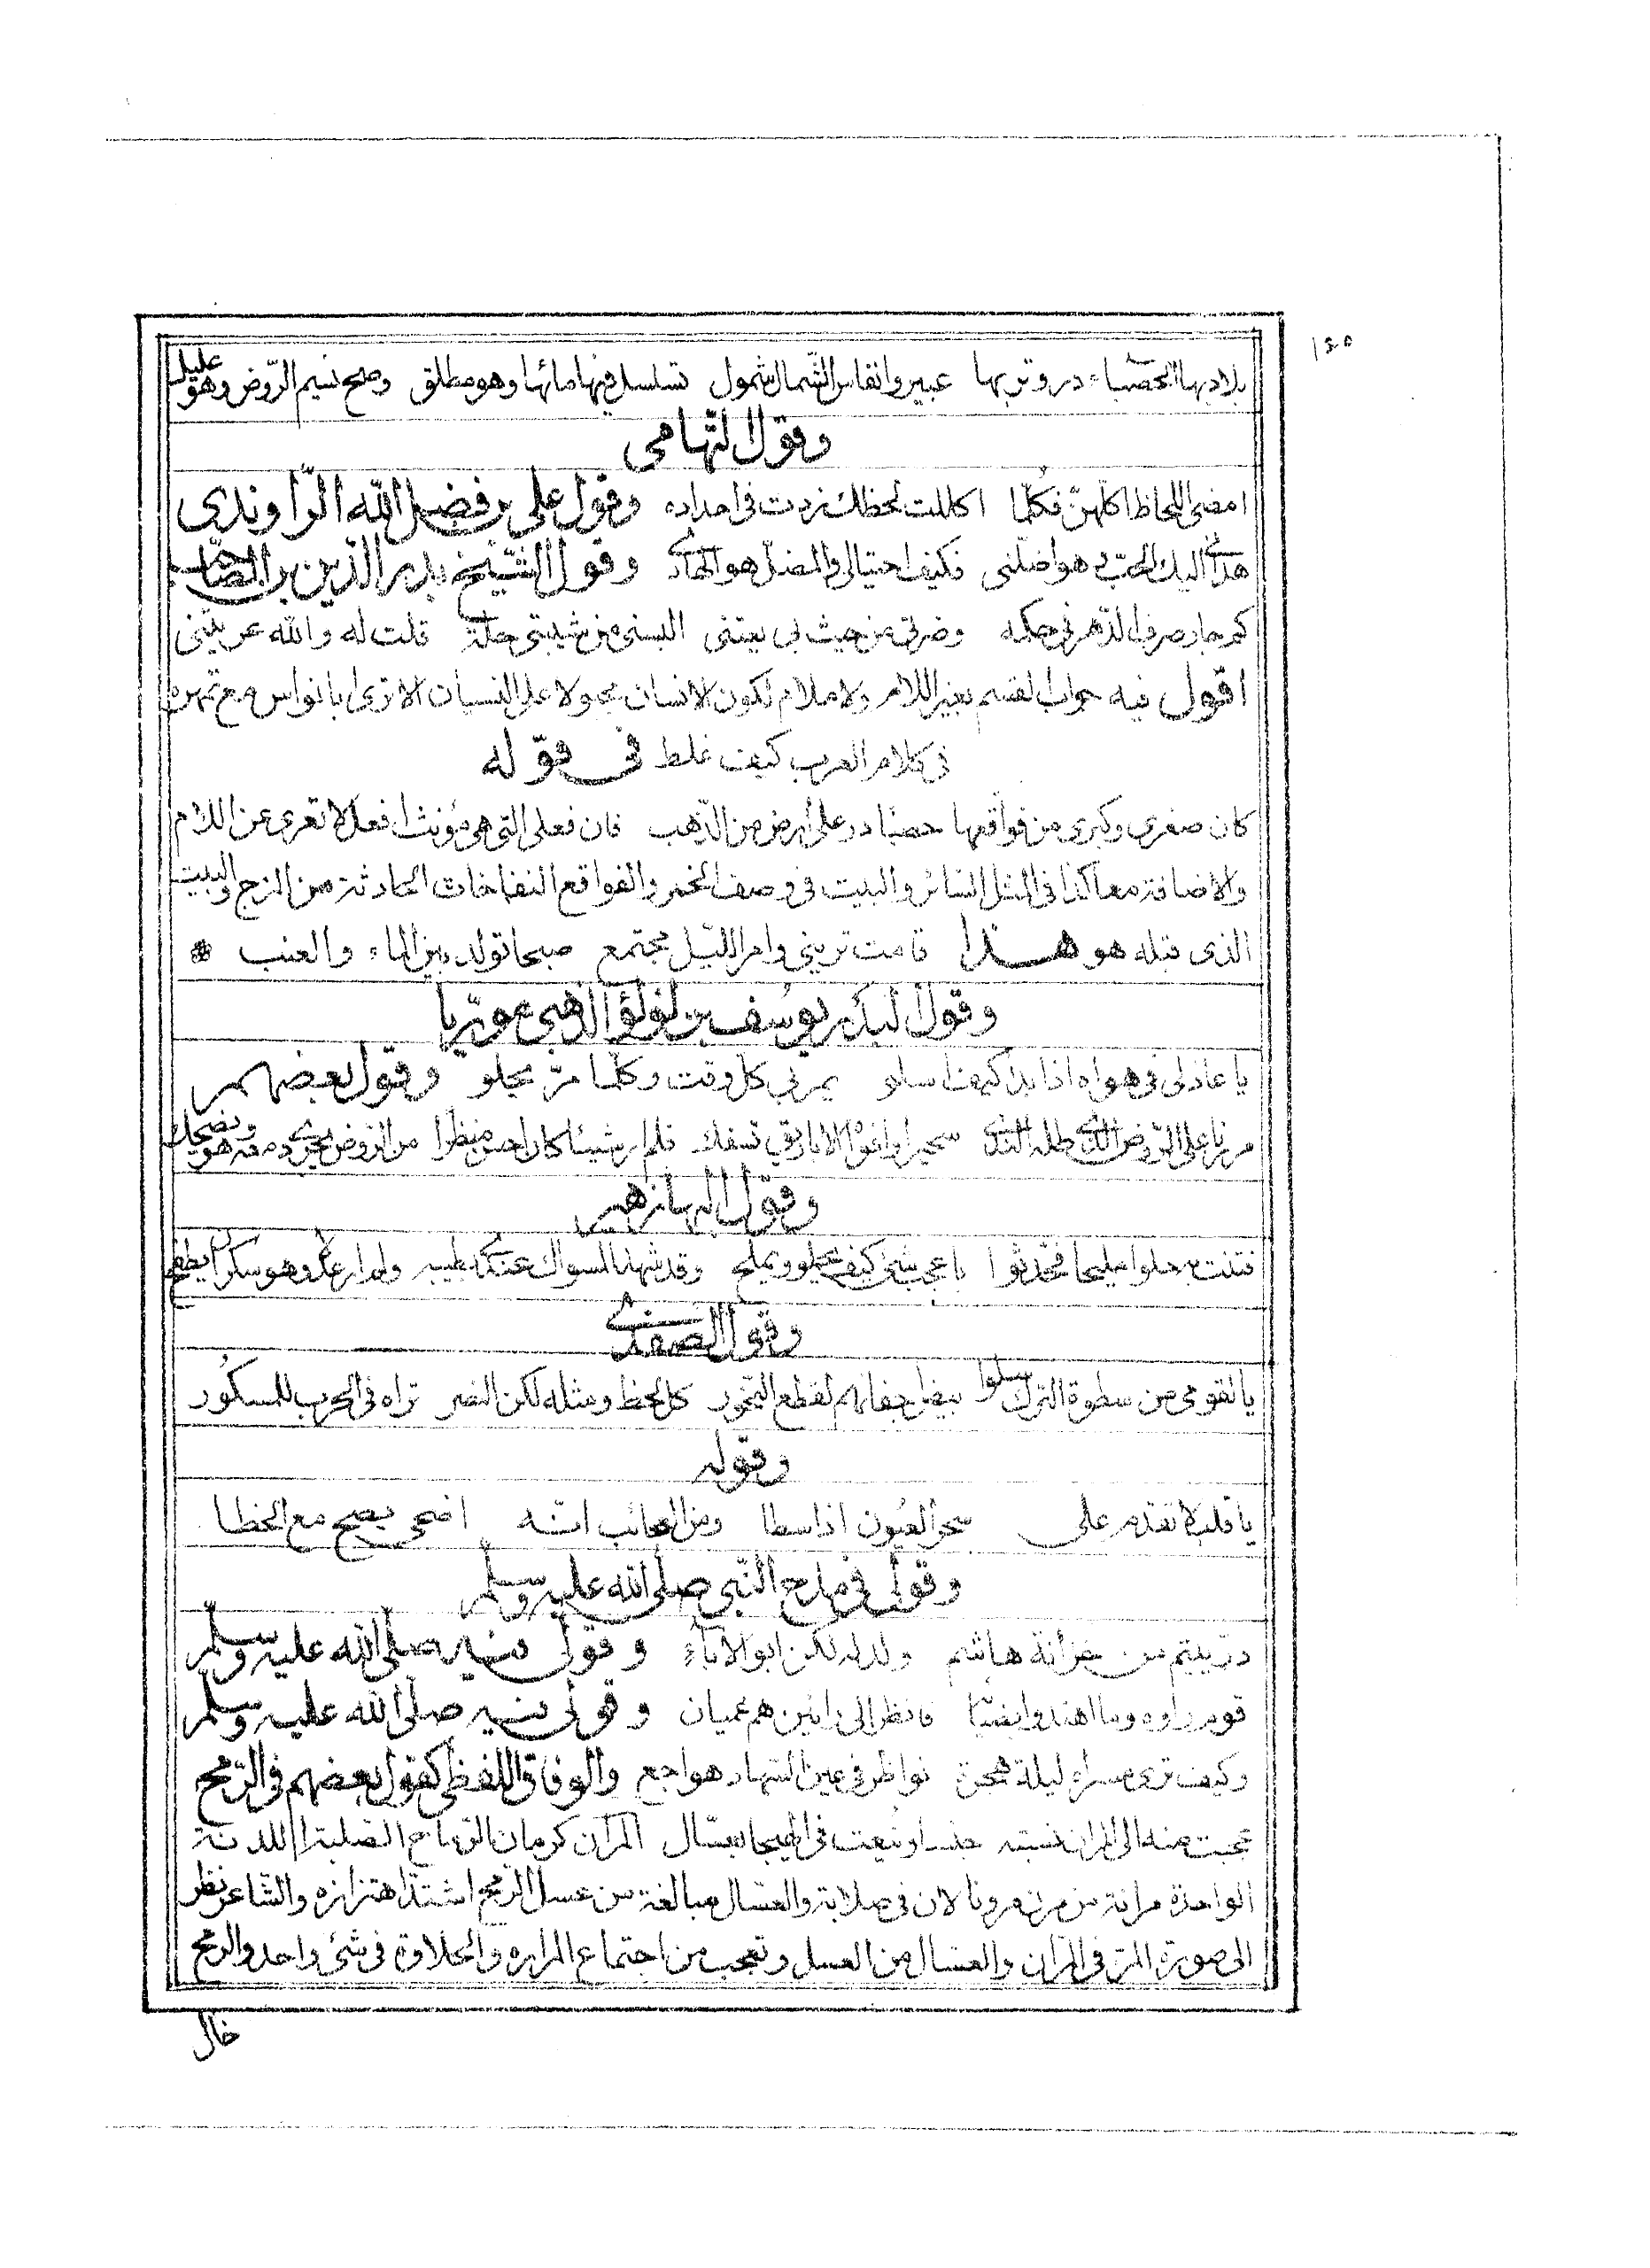 ١٤٥
بلاد بها الحصباء در وتربها عبير وانفاس الشمال شمول تسلسل فيها مائها وهو مطلق وصح نسيم الروض وهو عليل
وقول التهامي
امضى اللحاظ اكلهن فكلما اكللت لحظك زدت في احداده وقول علي بن فضل الله الراوندي
هداى اليك الحب هو اضلني فكيف احتيالي والمضل هو الهادى وقول الشيخ بدر الدين بن الصاحب
كم جار صرف الدهر في حكمه وضرني من حيث بي يعتني البسني من شيبتي حلة قلت له والله عريتني
اقول فيه جواب القسم بغير اللام ولا ملام لكون الانسان مجبولا على النسيان الا ترى ابا نواس مع تمهره
في كلام العرب كيف غلط في قوله
كان صغرى وكبرى من فواقعها حصباء در على أرض من الذهب فان فعلى التي هو مؤنث افعل لا تعرى عن اللام
والاضافة معا كذا في المثل السائر والبيت في وصف الخمر والفواقع النفاخات الحادثة من المزج والبيت
الذى قبله هو هذا قامت تريني وامر الليل مجتمع صبحا تولد بين الماء والعنب
وقول البدر يوسف بن لؤلؤ الذهبي موريا
يا عاذلي في هواه اذا بدا كيف اسلو يمر بي كل وقت وكلما مر يحلو وقول بعضهم
مررنا على الروض الذى طله الندى سحيرا واغوا الاباريق تسفك فلم ار شيئا كان احسن منظرا من الروض يجرى دمعه وهو يضحك
وقول البها زهير
فتنت به حلوا مليحا فحدثوا باعجب شئ كيف يحلو ويملح وقد شهد السواك عندى بطيبه ولم ار عدلا وهو سكران يطفح
وقول الصفدى
يا لقومي من سطوة الترك سلوا بيض اجفانهم لقطع النحور كل لحظ ومثله لكن النصر تراه في الحرب للمسكور
وقوله
يا قلب لا تقدم على سحر العيون اذا سطا ومن العجائب انه اضحى يصح مع الخطا
وقولي في مدح النبي صلى الله عليه وسلم
در يتيم من خزانة هاشم ولد له لكن ابو الآباء وقولي فيه صلى الله عليه وسلم
قوم راوه وما اهتدوا ايضا فانظر الى رائين هم عميان وقولي فيه صلى الله عليه وسلم
وكيف ترى مسراه ليلة هجرة نواظر في عين السهاد هواجع والوفاق اللفظي كقول بعضهم في الرمح
عجبت منه الى المران نسبته جنسا ونعت في الهيجا بعسال المران كرمان الرماح الصلبة اللدنة
الواحدة مرانة من مرن مرونا لان في صلابة والعسال مبالغة من عسل الرمح اشتد اهتزازه والشاعر نظر
الى صورة المر في المران والعسال من العسل وتعجب من اجتماع المراره والحلاوة في شئ واحد والرمح
خال